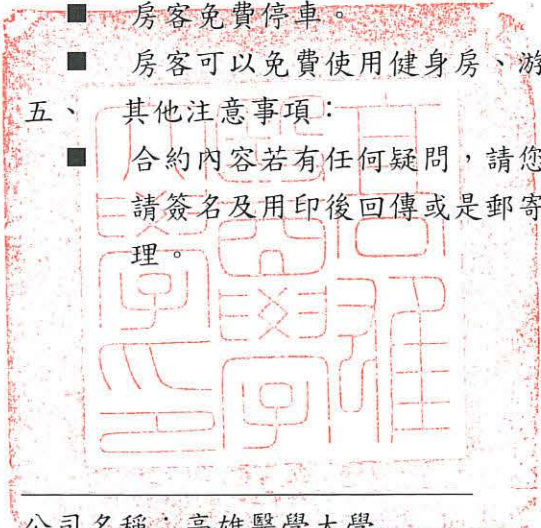 ■ 房客免費停車。
■ 房客可以免費使用健身房、游
五、 其他注意事項：
■ 合約內容若有任何疑問，請您
請簽名及用印後回傳或是郵寄
理。
高雄醫學大學印
公司名稱：高雄醫學大學